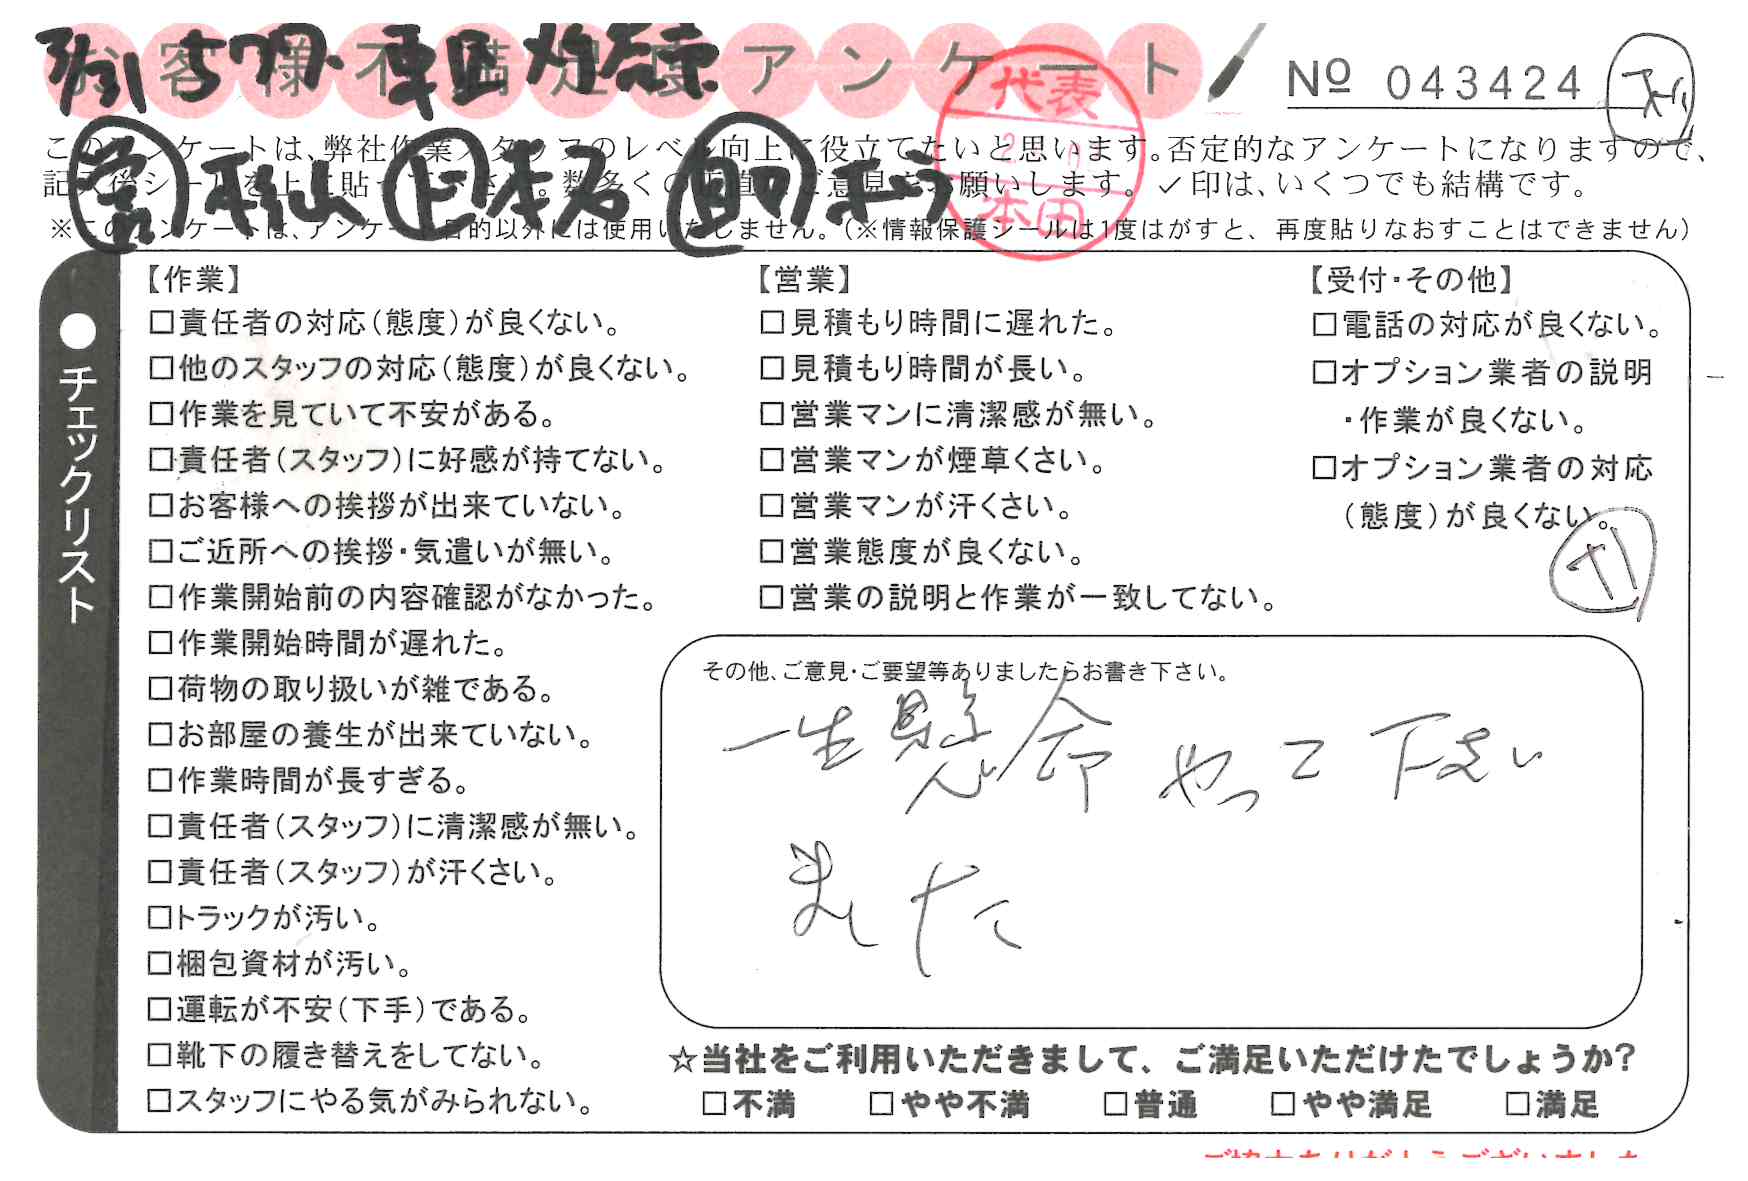 お客様不満足度アンケート
No 043424
7/31
代表
本田
このアンケートは、弊社作業スタッフのレベル向上に役立てたいと思います。否定的なアンケートになりますので、
記入後シールを上に貼って下さい。数多くの正直なご意見をお願いします。✓印は、いくつでも結構です。
※このアンケートは、アンケート目的以外には使用いたしません。(※情報保護シールは1度はがすと、再度貼りなおすことはできません)
●チェックリスト
【作業】
□責任者の対応(態度)が良くない。
□他のスタッフの対応(態度)が良くない。
□作業を見ていて不安がある。
□責任者(スタッフ)に好感が持てない。
□お客様への挨拶が出来ていない。
□ご近所への挨拶・気遣いが無い。
□作業開始前の内容確認がなかった。
□作業開始時間が遅れた。
□荷物の取り扱いが雑である。
□お部屋の養生が出来ていない。
□作業時間が長すぎる。
□責任者(スタッフ)に清潔感が無い。
□責任者(スタッフ)が汗くさい。
□トラックが汚い。
□梱包資材が汚い。
□運転が不安(下手)である。
□靴下の履き替えをしてない。
□スタッフにやる気がみられない。
【営業】
□見積もり時間に遅れた。
□見積もり時間が長い。
□営業マンに清潔感が無い。
□営業マンが煙草くさい。
□営業マンが汗くさい。
□営業態度が良くない。
□営業の説明と作業が一致してない。
【受付・その他】
□電話の対応が良くない。
□オプション業者の説明
・作業が良くない。
□オプション業者の対応
(態度)が良くない。
その他、ご意見・ご要望等ありましたらお書き下さい。
一生懸命やって下さい
ました
☆当社をご利用いただきまして、ご満足いただけたでしょうか?
□不満 □やや不満 □普通 □やや満足 □満足
ご協力ありがとうございました